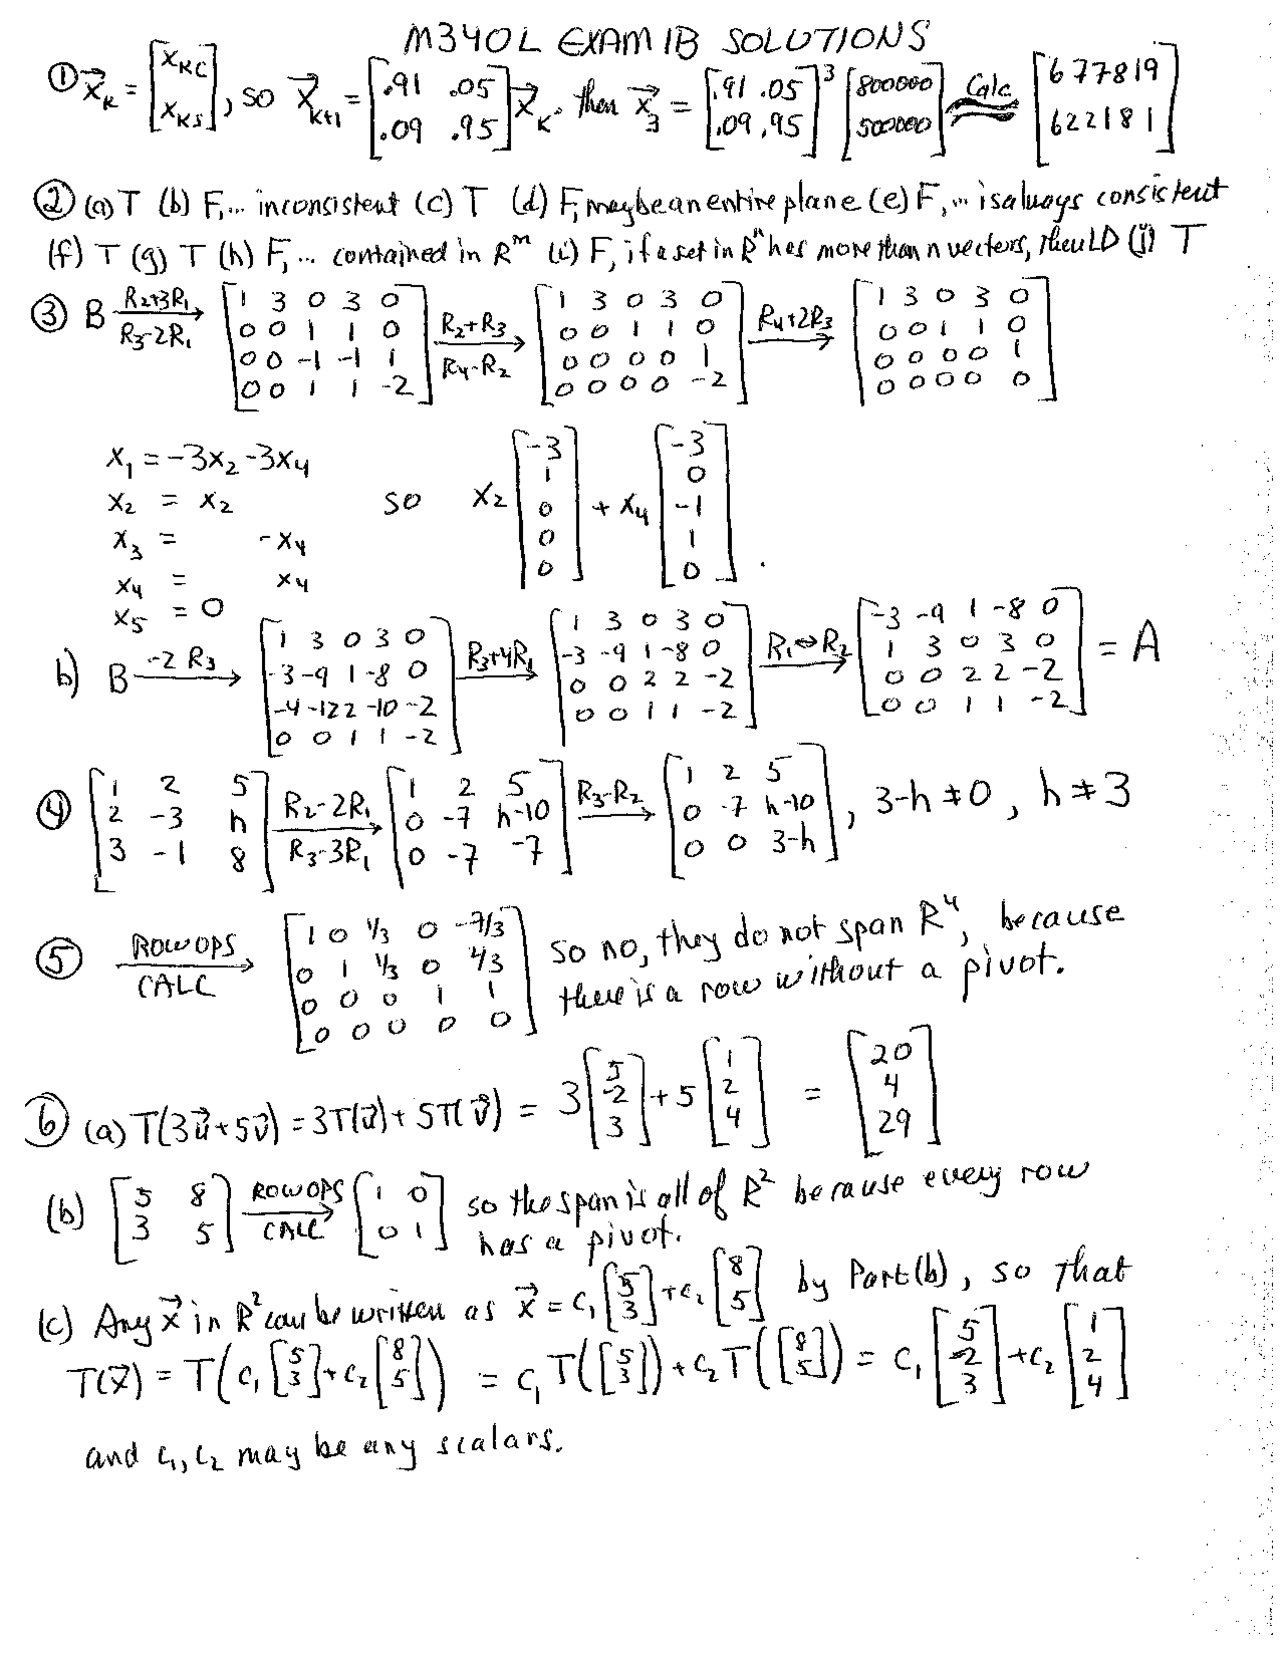 M340L EXAM 1B SOLUTIONS
① x⃗_k = [x_kc; x_ks], so x⃗_k+1 = [.91 .05; .09 .95] x⃗_k. then x⃗_3 = [.91 .05; .09 .95]^3 [800000; 500000] Calc ≈ [677819; 622181]
② (a) T (b) F, ... inconsistent (c) T (d) F, maybe an entire plane (e) F, ... is always consistent
(f) T (g) T (h) F, ... contained in R^m (i) F, if a set in R^n has more than n vectors, then LD (j) T
③ B R2+3R1 R3-2R1 → [1 3 0 3 0; 0 0 1 1 0; 0 0 -1 -1 1; 0 0 1 1 -2] R2+R3 R4-R2 → [1 3 0 3 0; 0 0 1 1 0; 0 0 0 0 1; 0 0 0 0 -2] R4+2R3 → [1 3 0 3 0; 0 0 1 1 0; 0 0 0 0 1; 0 0 0 0 0]
x1 = -3x2 -3x4
x2 = x2 so x2 [-3; 1; 0; 0; 0] + x4 [-3; 0; -1; 1; 0].
x3 = -x4
x4 = x4
x5 = 0
b) B -2 R3 → [1 3 0 3 0; -3 -9 1 -8 0; -4 -12 2 -10 -2; 0 0 1 1 -2] R3+4R1 → [1 3 0 3 0; -3 -9 1 -8 0; 0 0 2 2 -2; 0 0 1 1 -2] R1↔R2 → [-3 -9 1 -8 0; 1 3 0 3 0; 0 0 2 2 -2; 0 0 1 1 -2] = A
④ [1 2 5; 2 -3 h; 3 -1 8] R2-2R1 R3-3R1 → [1 2 5; 0 -7 h-10; 0 -7 -7] R3-R2 → [1 2 5; 0 -7 h-10; 0 0 3-h], 3-h ≠ 0, h ≠ 3
⑤ ROW OPS CALC → [1 0 1/3 0 -7/3; 0 1 1/3 0 4/3; 0 0 0 1 1; 0 0 0 0 0] so no, they do not span R^4, because
there is a row without a pivot.
⑥ (a) T(3u⃗+5v⃗) = 3T(u⃗) + 5T(v⃗) = 3 [5; -2; 3] + 5 [1; 2; 4] = [20; 4; 29]
(b) [5 8; 3 5] ROW OPS CALC → [1 0; 0 1] so the span is all of R^2 because every row
has a pivot.
(c) Any x⃗ in R^2 can be written as x⃗ = c1 [5; 3] + c2 [8; 5] by Part (b), so that
T(x⃗) = T(c1 [5; 3] + c2 [8; 5]) = c1 T([5; 3]) + c2 T([8; 5]) = c1 [5; -2; 3] + c2 [1; 2; 4]
and c1, c2 may be any scalars.